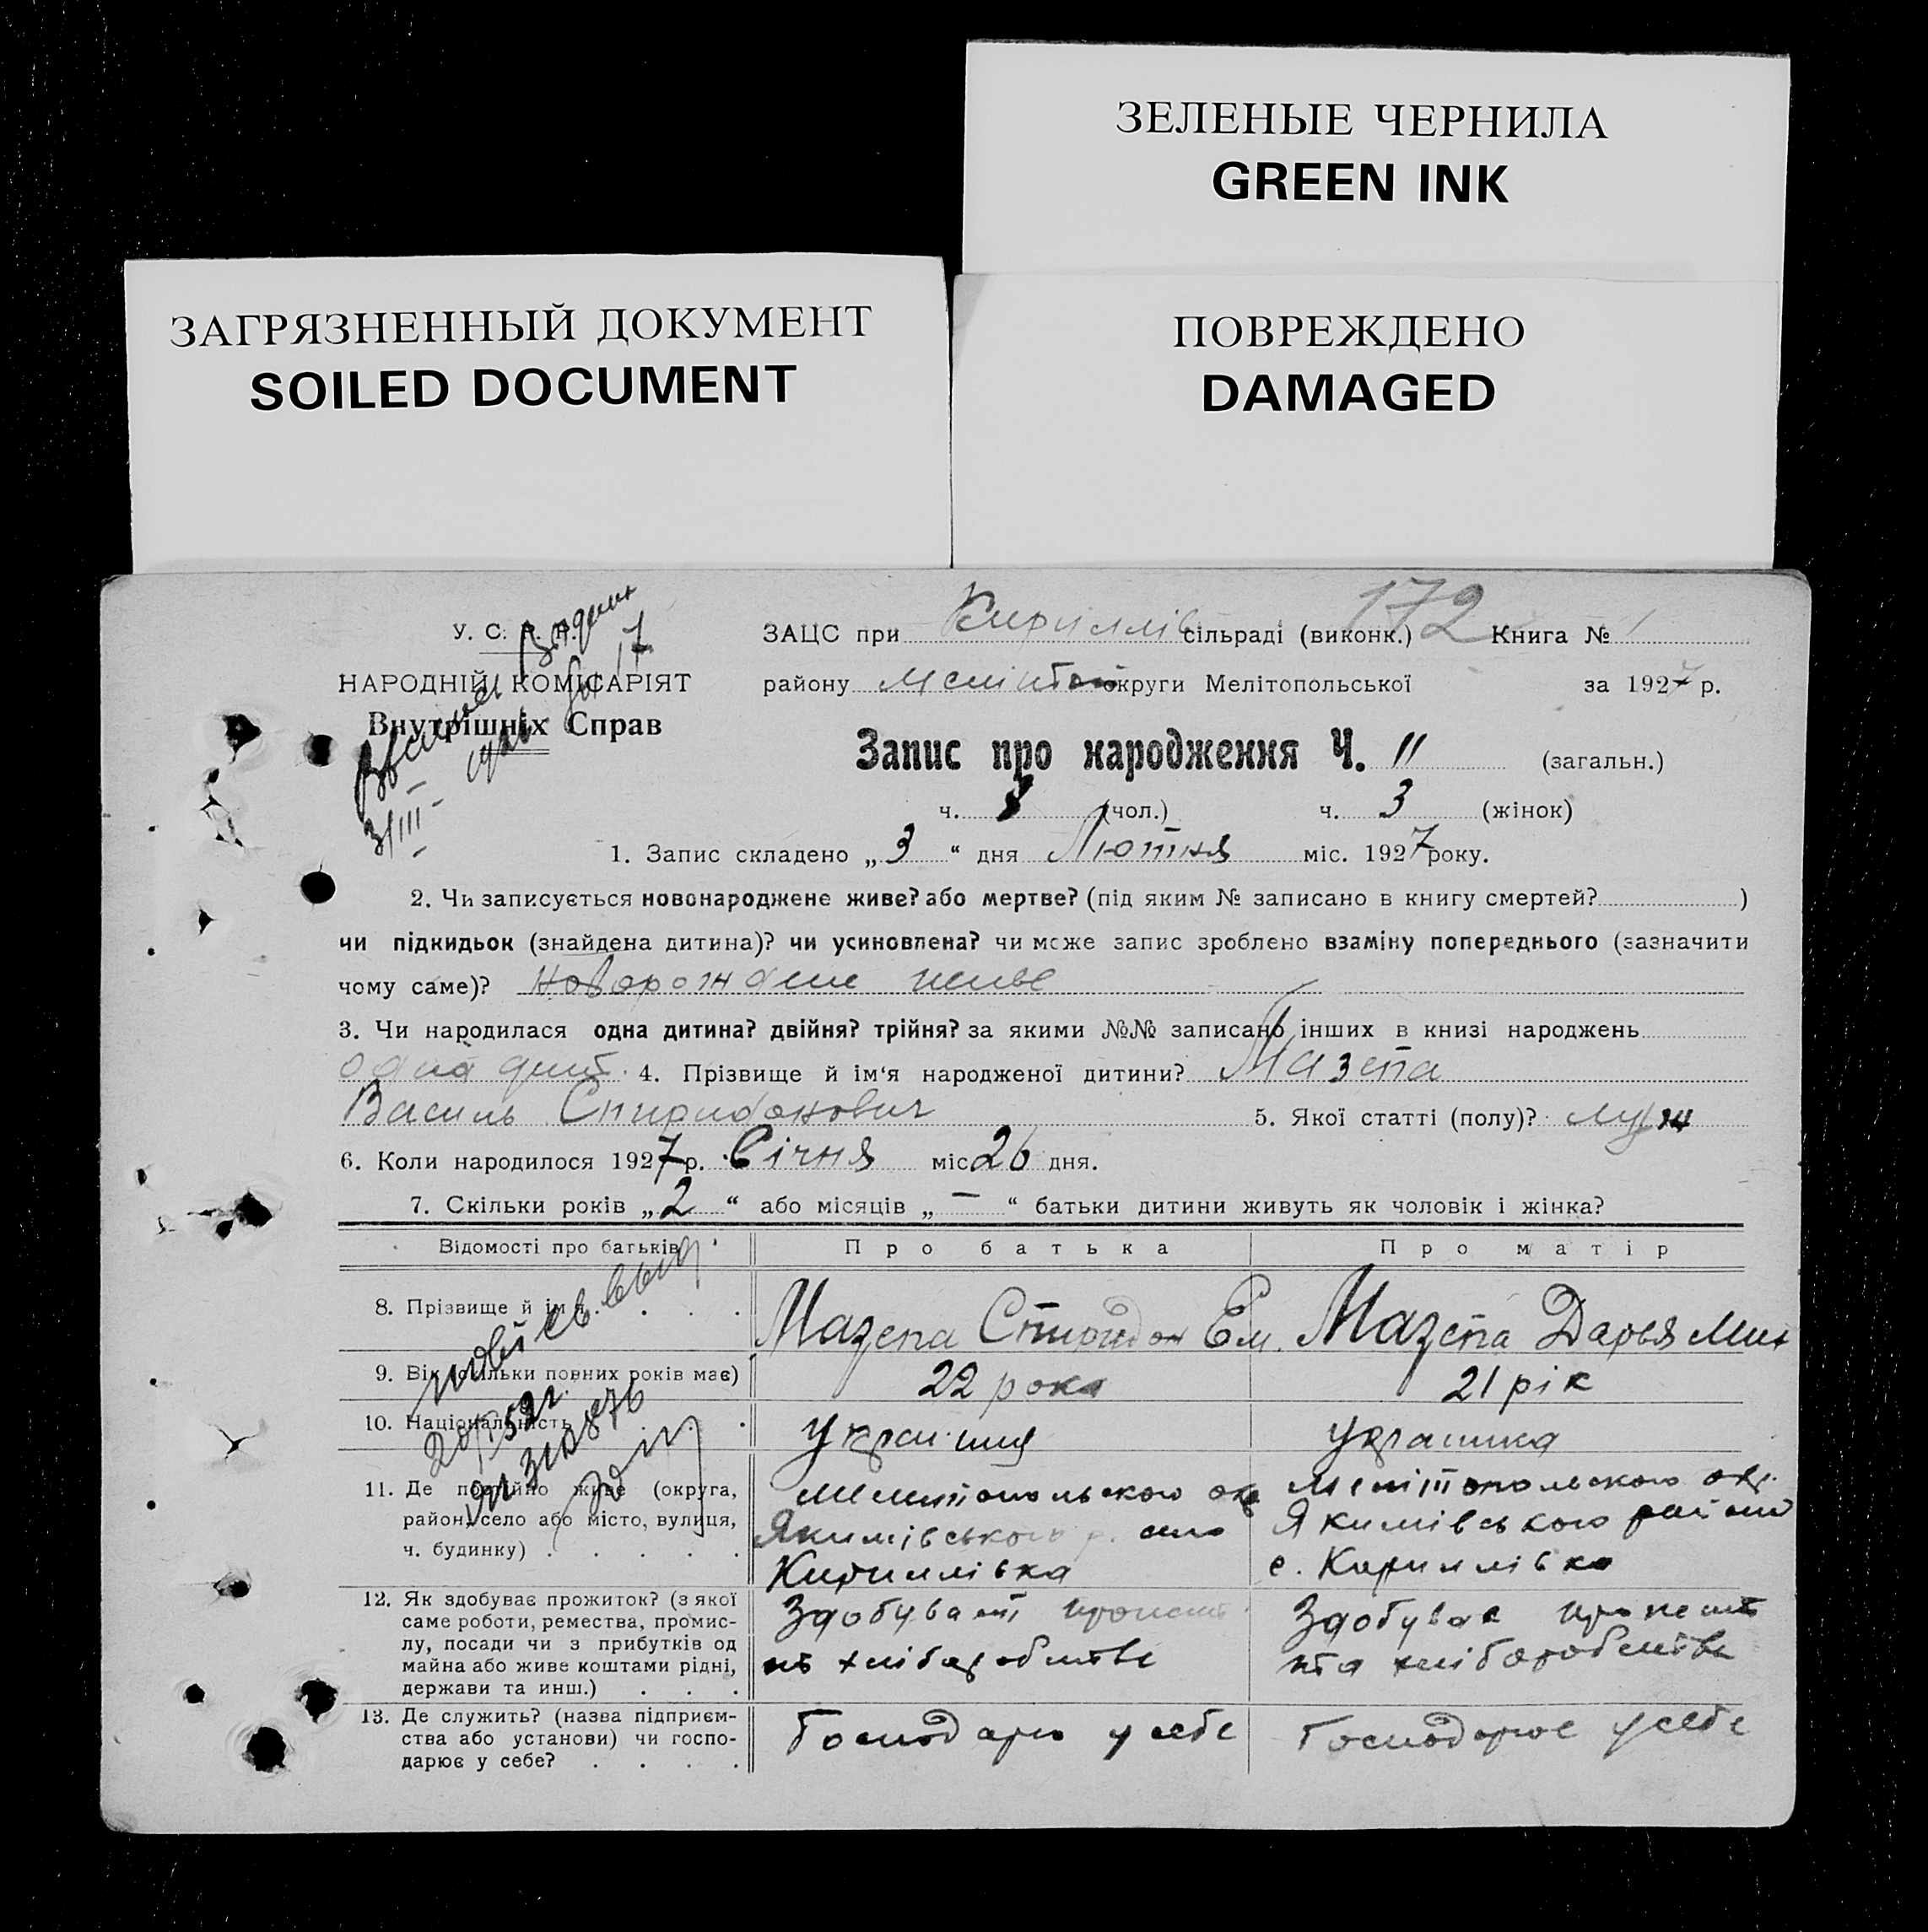 ЗЕЛЕНЫЕ ЧЕРНИЛА
GREEN INK
ЗАГРЯЗНЕННЫЙ ДОКУМЕНТ
SOILED DOCUMENT
ПОВРЕЖДЕНО
DAMAGED
У. С. Р. Р.
НАРОДНІЙ КОМІСАРІЯТ
Внутрішніх Справ
3/III
17
172
ЗАЦС при Кириллів сільраді (виконк.) Книга № 1
району округи Мелітопольської за 1927 р.
Запис про народження Ч. 11 (загальн.)
ч. 8 (чол.) ч. 3 (жінок)
1. Запис складено „3“ дня Лютня міс. 1927 року.
2. Чи записується новонароджене живе? або мертве? (під яким № записано в книгу смертей? )
чи підкидьок (знайдена дитина)? чи усиновлена? чи може запис зроблено взаміну попереднього (зазначити
чому саме)? новорождене живе
3. Чи народилася одна дитина? двійня? трійня? за якими №№ записано інших в книзі народжень
одна дит. 4. Прізвище й ім‘я народженої дитини? Мазепа
Василь Спиридонович 5. Якої статті (полу)? муж
6. Коли народилося 1927 р. Січня міс 26 дня.
7. Скільки років „2“ або місяців „—“ батьки дитини живуть як чоловік і жінка?
Відомості про батьків Про батька Про матір
8. Прізвище й ім‘я Мазепа Спиридон Ем. Мазепа Дарья Мих
9. Вік (скільки повних років має) 22 рока 21 рік
10. Національність Українець Українка
11. Де постійно живе (округа, Мелітопольского окр Мелітопольского окр.
район, село або місто, вулиця, Якимівського р. село Якимівського району
ч. будинку) Кириллівка с. Кириллівка
12. Як здобуває прожиток? (з якої Здобуває
саме роботи, ремества, промис-
лу, посади чи з прибутків од
майна або живе коштами рідні,
держави та инш.)
13. Де служить? (назва підприєм- Господарю у себе Господарює у себе
ства або установи) чи госпо-
дарює у себе?